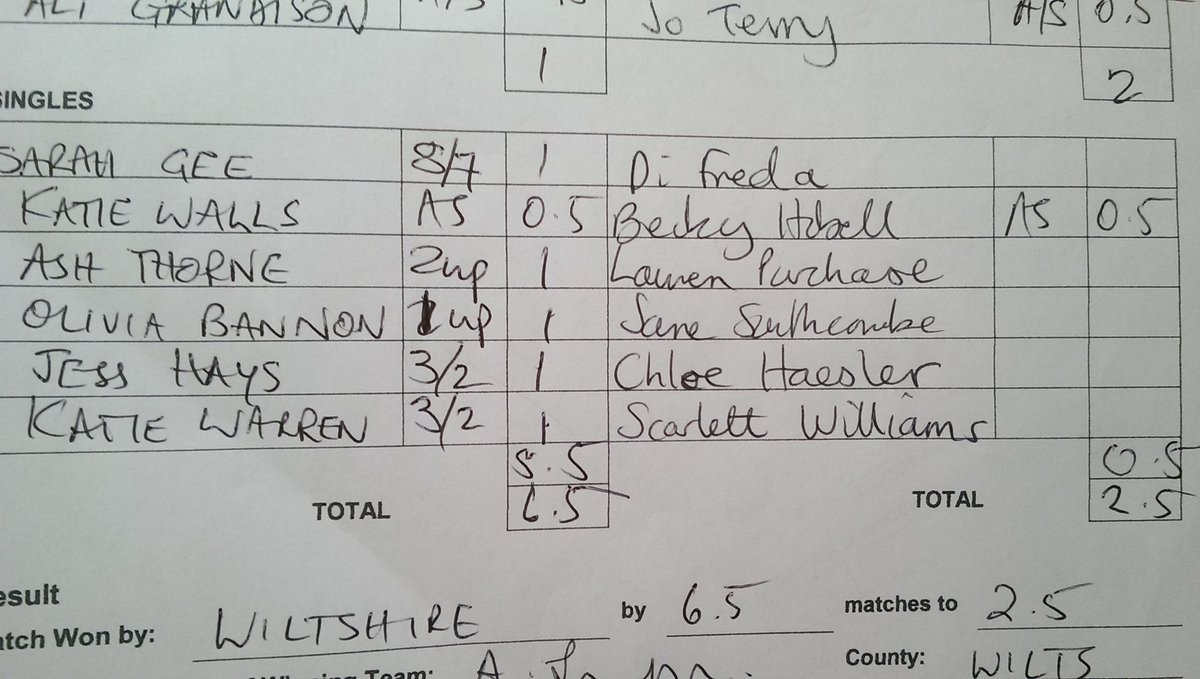 ALI GRANAISON Jo Terry A/S 0.5
1 2
SINGLES
SARAH GEE 8/7 1 Di Freda
KATIE WALLS AS 0.5 Becky AS 0.5
ASH THORNE 2up 1 Lauren Purchase
OLIVIA BANNON 1up 1 Jane Southcombe
JESS HAYS 3/2 1 Chloe Haesler
KATIE WARREN 3/2 1 Scarlett Williams
5.5 0.5
TOTAL 6.5 TOTAL 2.5
esult
atch Won by: WILTSHIRE by 6.5 matches to 2.5
Winning Team: County: WILTS